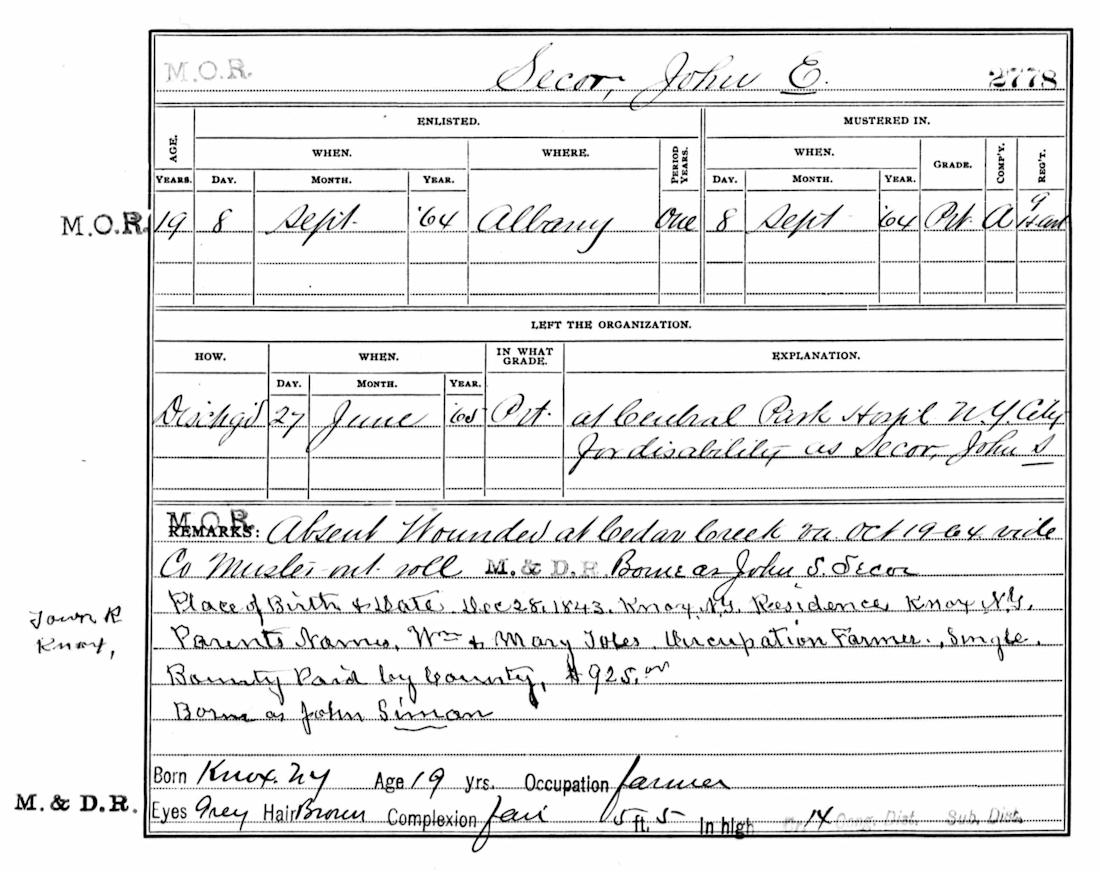 M.O.R. Secor, John E. 2778
ENLISTED. MUSTERED IN.
AGE. WHEN. WHERE. PERIOD YEARS. WHEN. GRADE. COMP'Y. REG'T.
YEARS. DAY. MONTH. YEAR. DAY. MONTH. YEAR.
M.O.R. 19 8 Sept. '64 Albany One 8 Sept '64 Prt. A 9 H art
LEFT THE ORGANIZATION.
HOW. WHEN. IN WHAT GRADE. EXPLANATION.
DAY. MONTH. YEAR.
Disch'g'd 27 June '65 Prt. at Central Park Hosp'l N.Y. City
for disability as Secor, John S
M.O.R.
REMARKS: Absent Wounded at Cedar Creek Va. Oct 19-64 vide
Co Muster-out roll M. & D. R. Borne as John S. Secor
Place of Birth & Date Dec 28, 1843. Knox, N.Y. Residence Knox N.Y.
Town R
Knox,
Parents Names, Wm & Mary Occupation Farmer., Single.
Bounty Paid by County, $925.00
Borne as John Siman
Born Knox. NY Age 19 yrs. Occupation farmer
M. & D. R. Eyes Grey Hair Brown Complexion fair 5 ft. 5 In high 14 Cong. Dist. Sub. Dist.